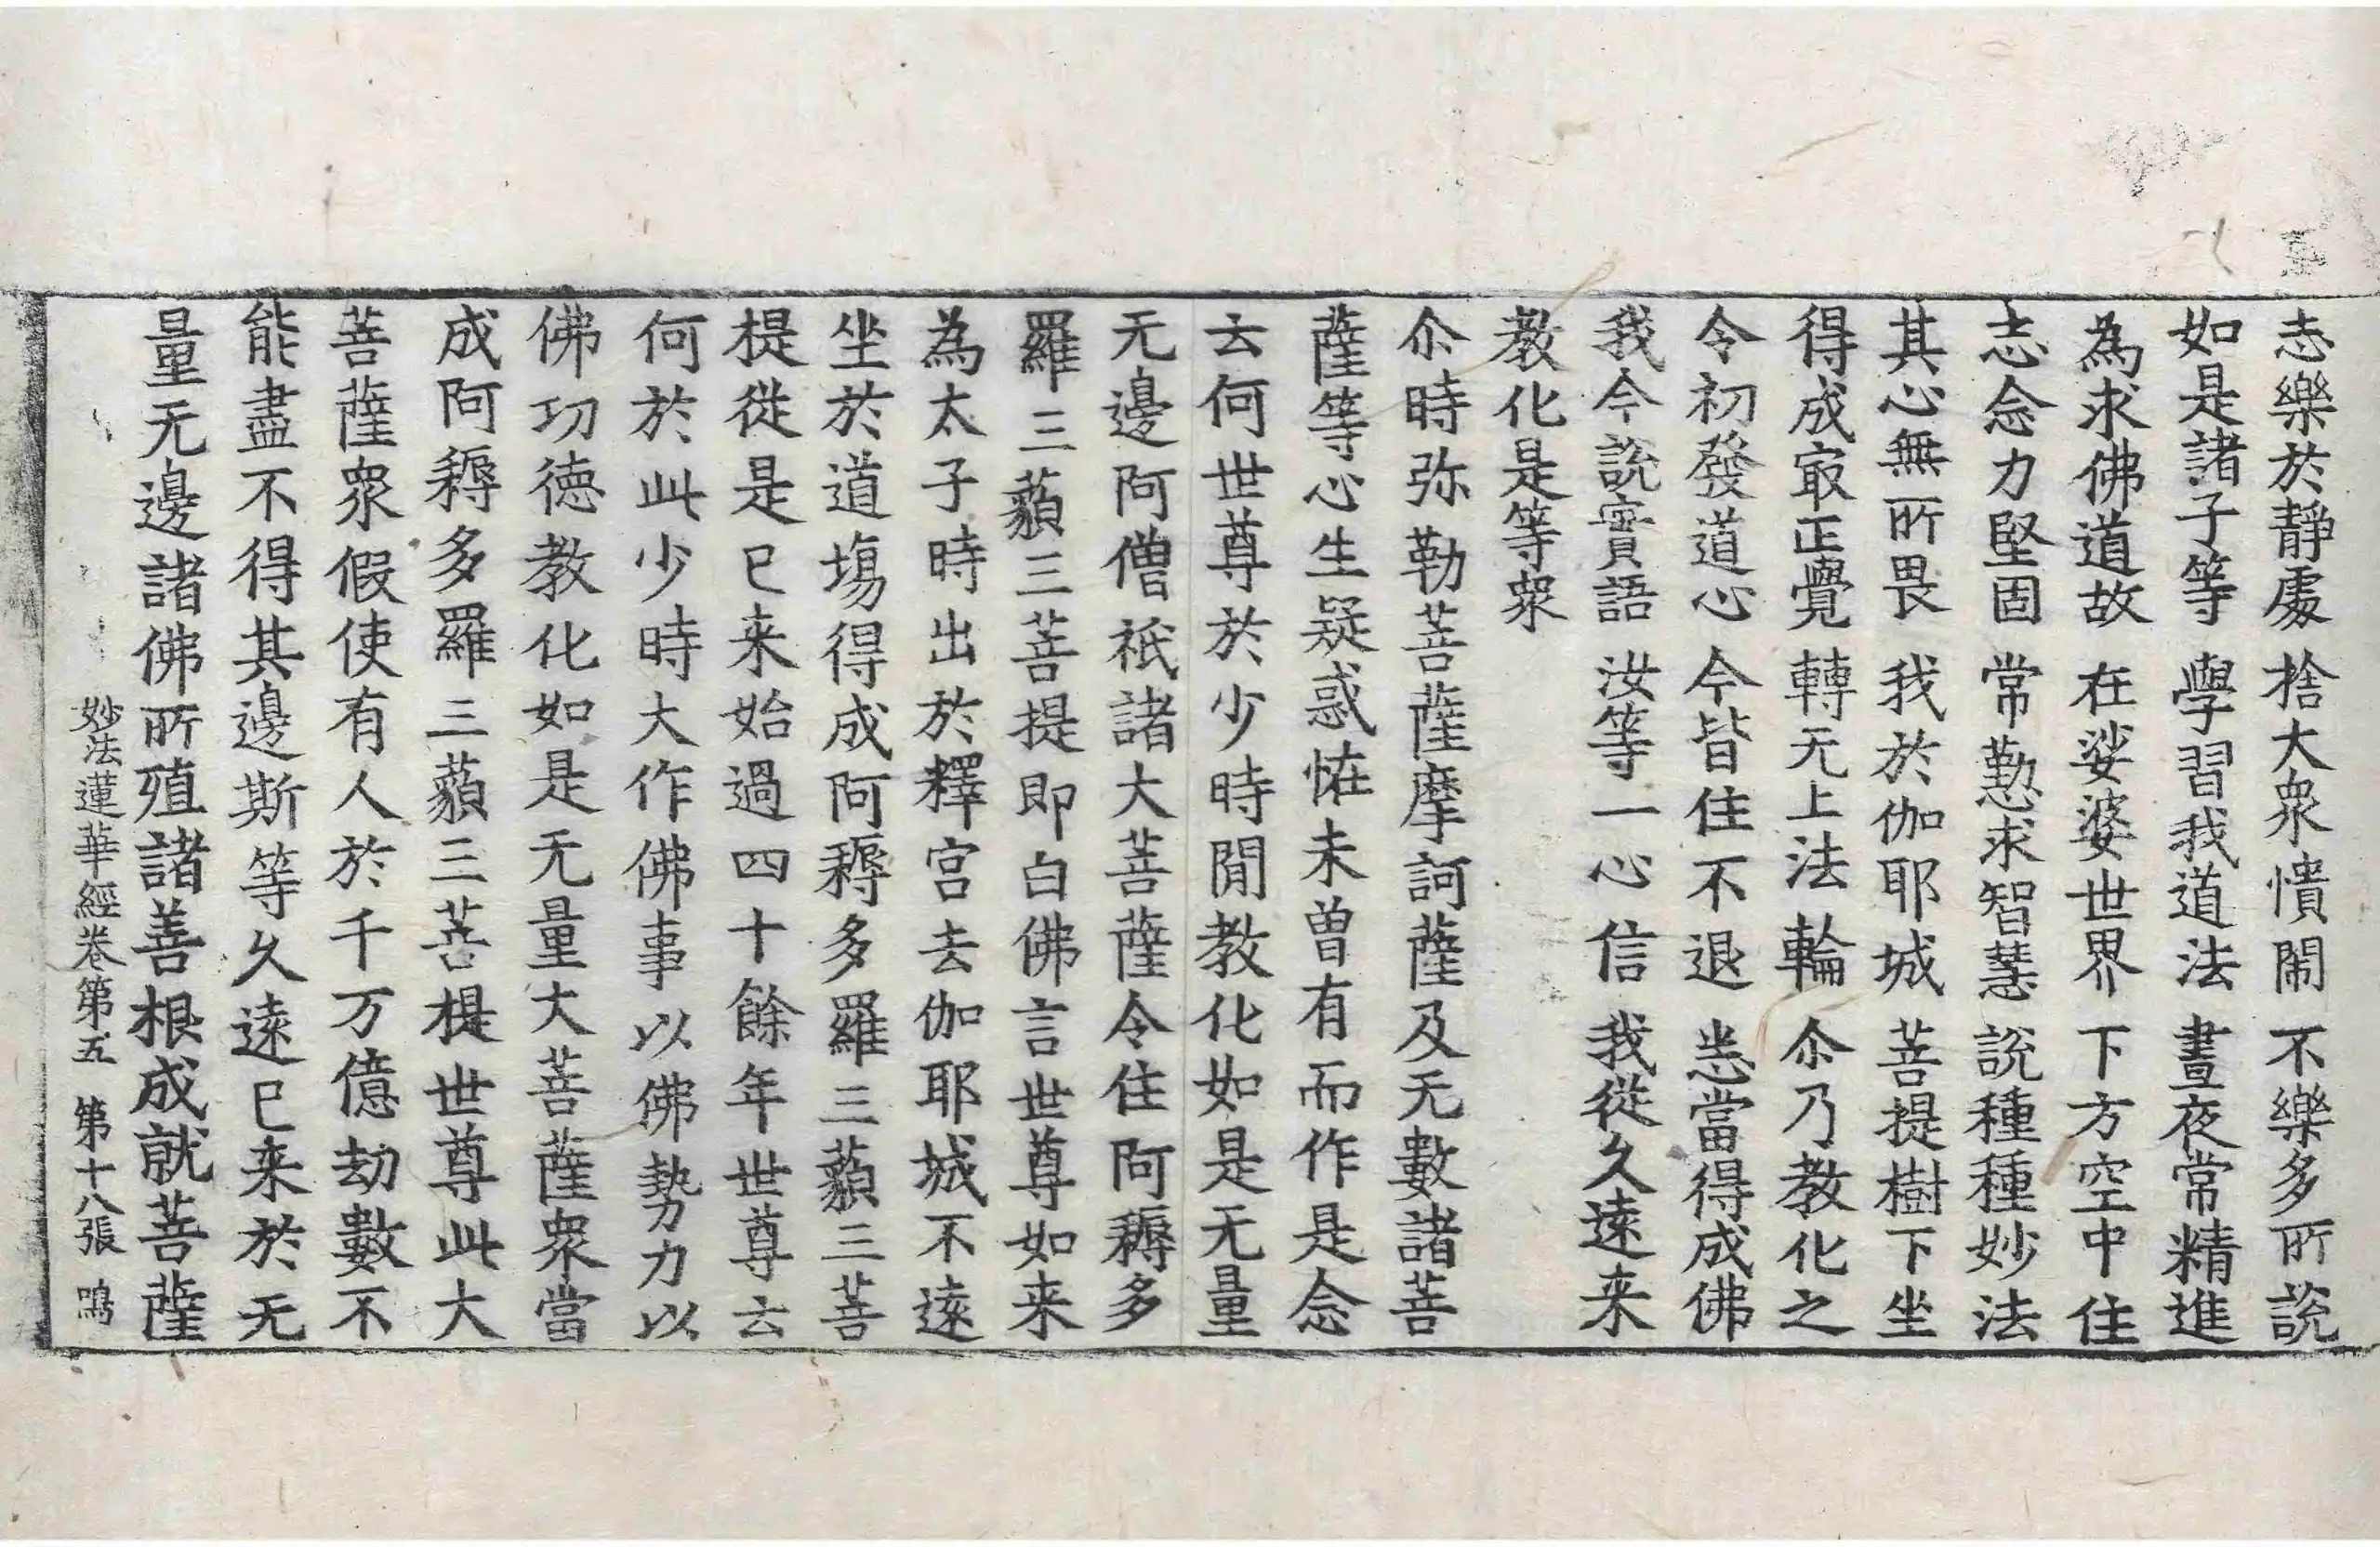 志樂於靜處 捨大眾憒閙 不樂多所說
如是諸子等 學習我道法 晝夜常精進
為求佛道故 在娑婆世界 下方空中住
志念力堅固 常懃求智慧 說種種妙法
其心無所畏 我於伽耶城 菩提樹下坐
得成㝡正覺 轉无上法輪 尒乃教化之
令初發道心 今皆住不退 悉當得成佛
我今說實語 汝等一心信 我從久遠来
教化是等眾
尒時弥勒菩薩摩訶薩及无數諸菩
薩等心生疑惑恠未曾有而作是念
云何世尊於少時閒教化如是无量
无邊阿僧祇諸大菩薩令住阿耨多
羅三藐三菩提即白佛言世尊如来
為太子時出於釋宮去伽耶城不遠
坐於道場得成阿耨多羅三藐三菩
提從是已来始過四十餘年世尊云
何於此少時大作佛事以佛勢力以
佛功德教化如是无量大菩薩眾當
成阿耨多羅三藐三菩提世尊此大
菩薩眾假使有人於千万億劫數不
能盡不得其邊斯等久遠已来於无
量无邊諸佛所殖諸善根成就菩薩
妙法蓮華經卷第五 第十八張 鳴